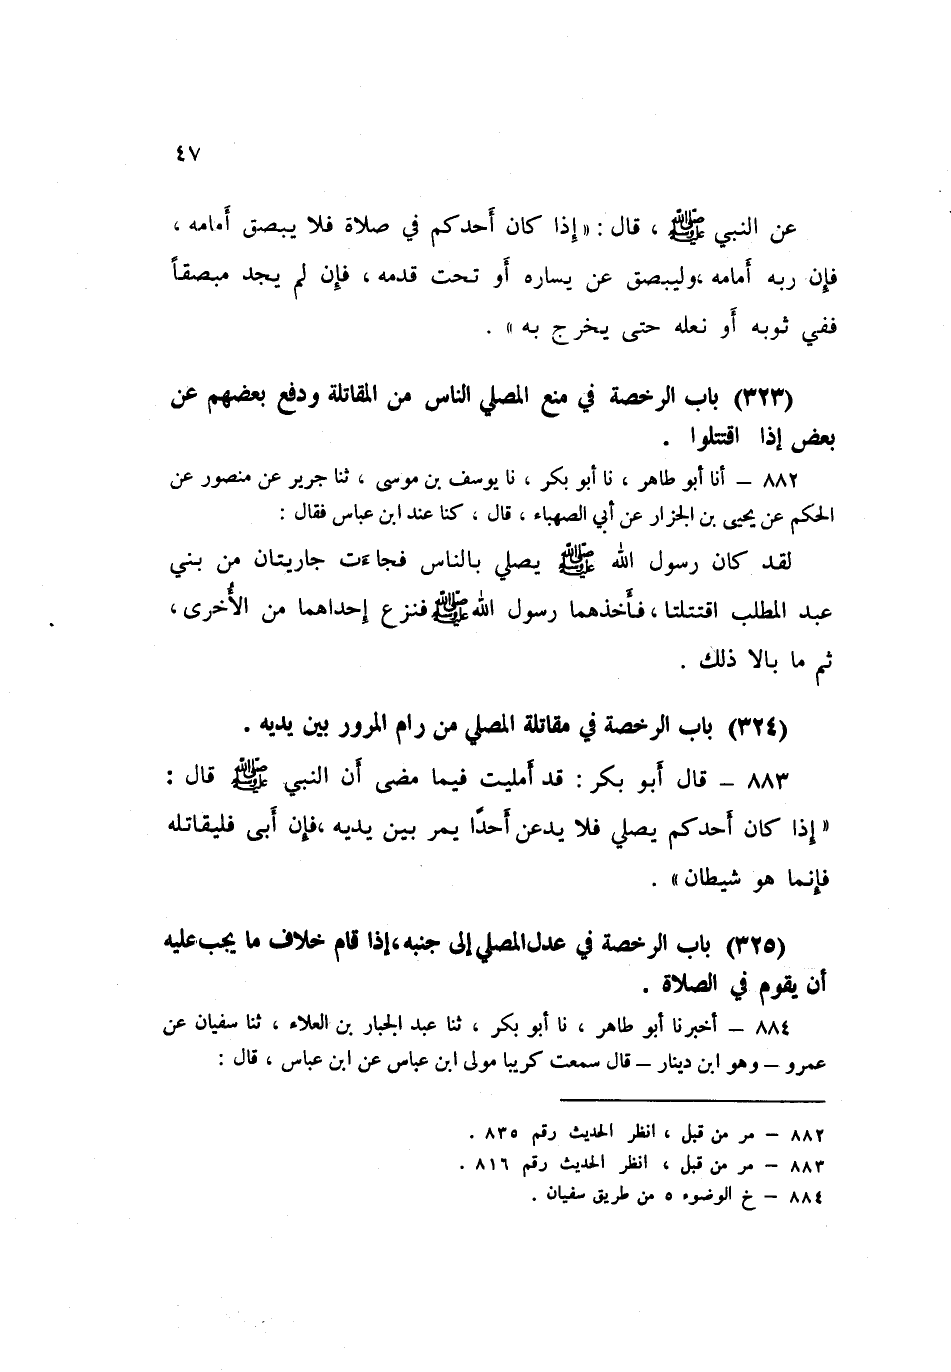 ٤٧
عن النبي ﷺ ، قال : « إذا كان أحدكم في صلاة فلا يبصق أمامه ،
فإن ربه أمامه ،وليبصق عن يساره أو تحت قدمه ، فإن لم يجد مبصقاً
ففي ثوبه أو نعله حتى يخرج به » .
(٣٢٣) باب الرخصة في منع المصلي الناس من المقاتلة ودفع بعضهم عن
بعض إذا اقتتلوا .
٨٨٢ – أنا أبو طاهر ، نا أبو بكر ، نا يوسف بن موسى ، ثنا جرير عن منصور عن
الحكم عن يحيى بن الجزار عن أبي الصهباء ، قال ، كنا عند ابن عباس فقال :
لقد كان رسول الله ﷺ يصلي بالناس فجاءت جاريتان من بني
عبد المطلب اقتتلتا ، فأخذهما رسول الله ﷺ فنزع إحداهما من الأُخرى ،
ثم ما بالا ذلك .
(٣٢٤) باب الرخصة في مقاتلة المصلي من رام المرور بين يديه .
٨٨٣ – قال أبو بكر : قد أمليت فيما مضى أن النبي ﷺ قال :
« إذا كان أحدكم يصلي فلا يدعن أحدًا يمر بين يديه ،فإن أبى فليقاتله
فإنما هو شيطان » .
(٣٢٥) باب الرخصة في عدل المصلي إلى جنبه ،إذا قام خلاف ما يجب عليه
أن يقوم في الصلاة .
٨٨٤ – أخبرنا أبو طاهر ، نا أبو بكر ، ثنا عبد الجبار بن العلاء ، ثنا سفيان عن
عمرو – وهو ابن دينار – قال سمعت كريبا مولى ابن عباس عن ابن عباس ، قال :
٨٨٢ – مر من قبل ، انظر الحديث رقم ٨٣٥ .
٨٨٣ – مر من قبل ، انظر الحديث رقم ٨١٦ .
٨٨٤ – خ الوضوء ٥ من طريق سفيان .